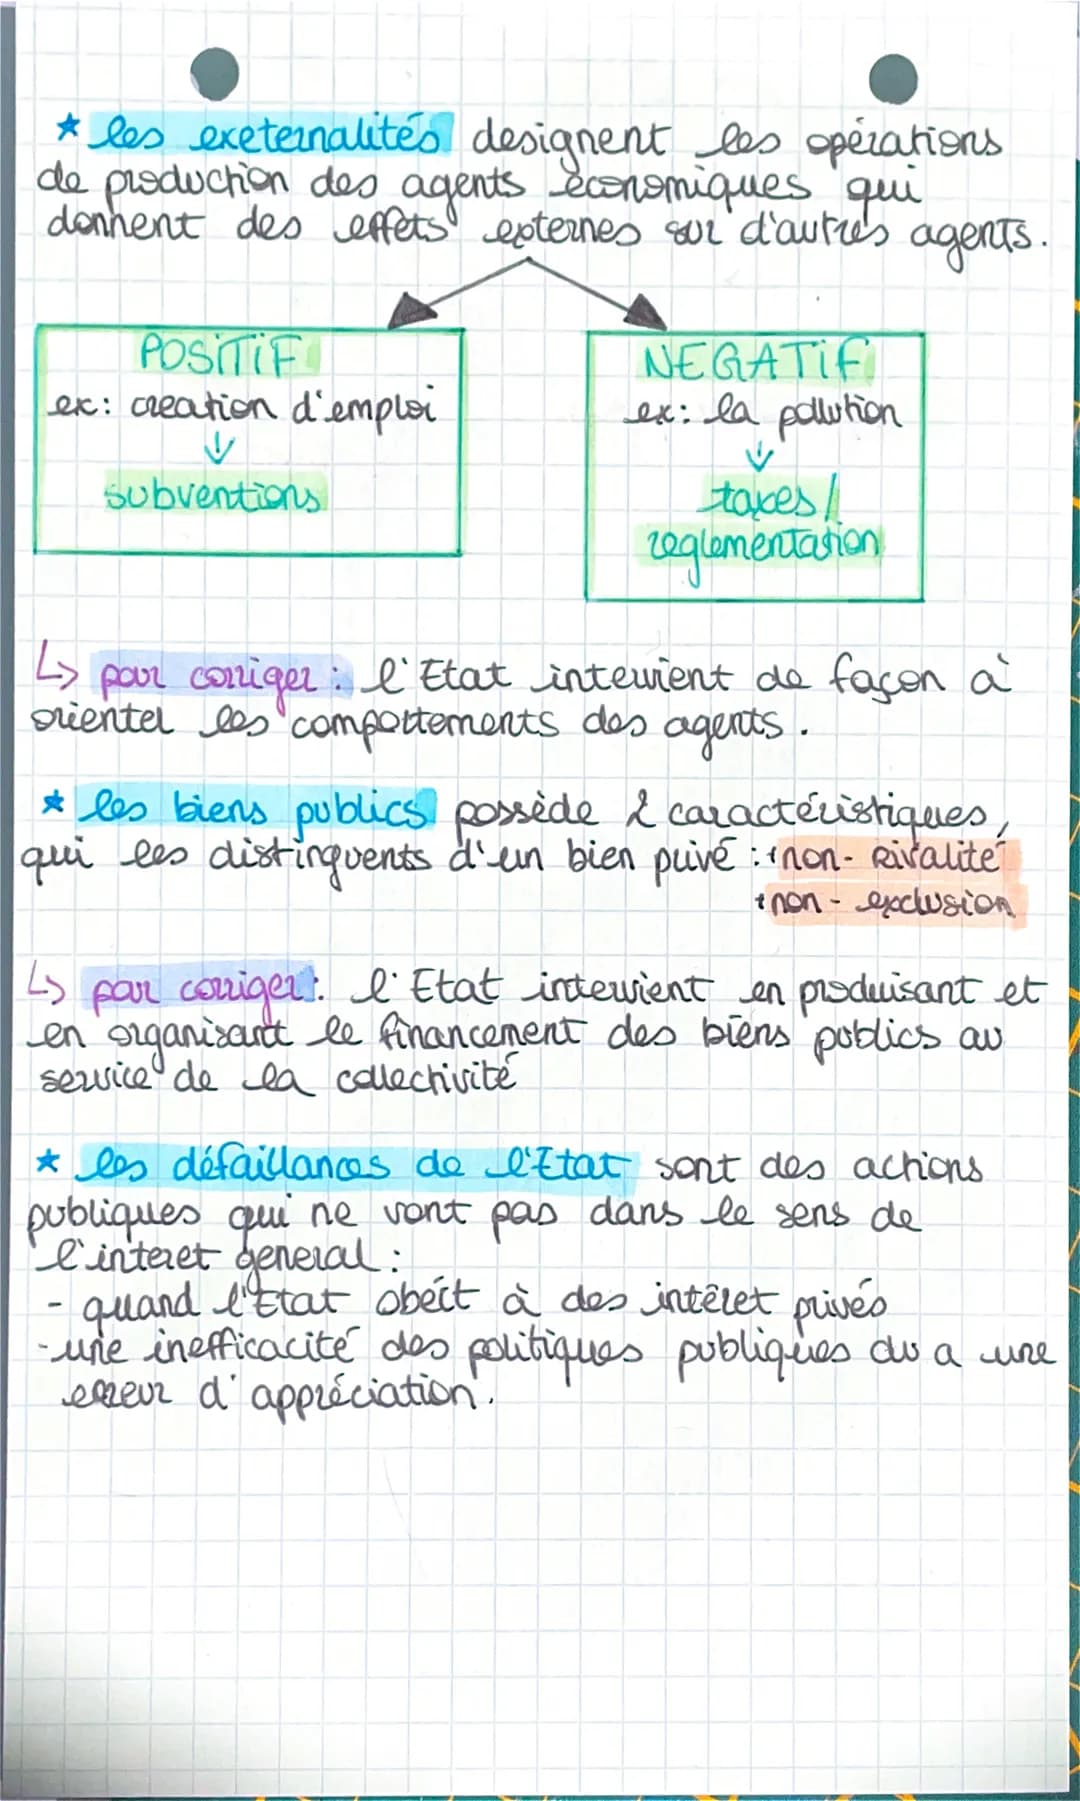 ★ les exeternalités designent les opérations
de production des agents économiques qui
donnent des effets externes sur d'autres agents.
POSITIF
ex: creation d'emploi
↓
subventions
NEGATIF
ex: la pollution
↓
taxes /
reglementation
↳ pour corriger : l'Etat intervient de façon à
orienter les comportements des agents.
★ les biens publics possède 2 caractéristiques,
qui les distinguents d'un bien privé : +non-Rivalité
+non-exclusion
↳ pour corriger : l'Etat intervient en produisant et
en organisant le financement des biens publics au
service de la collectivité
★ les défaillances de l'Etat sont des actions
publiques qui ne vont pas dans le sens de
l'interet general :
- quand l'Etat obéit à des intêret privés
- une inefficacité des politiques publiques du a une
erreur d'appréciation.